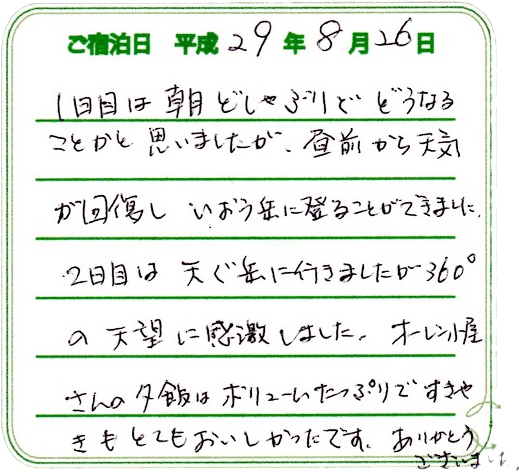 ご宿泊日 平成29年8月26日
1日目は朝どしゃぶりで どうなる
ことかと思いましたが、昼前から天気
が回復し いおう岳に登ることができました。
2日目は 天ぐ岳に行きましたが360°
の 天望に感激しました。 オーレン小屋
さんの夕飯はボリュームたっぷりで すきや
きもとてもおいしかったです。ありがとう
ございました。